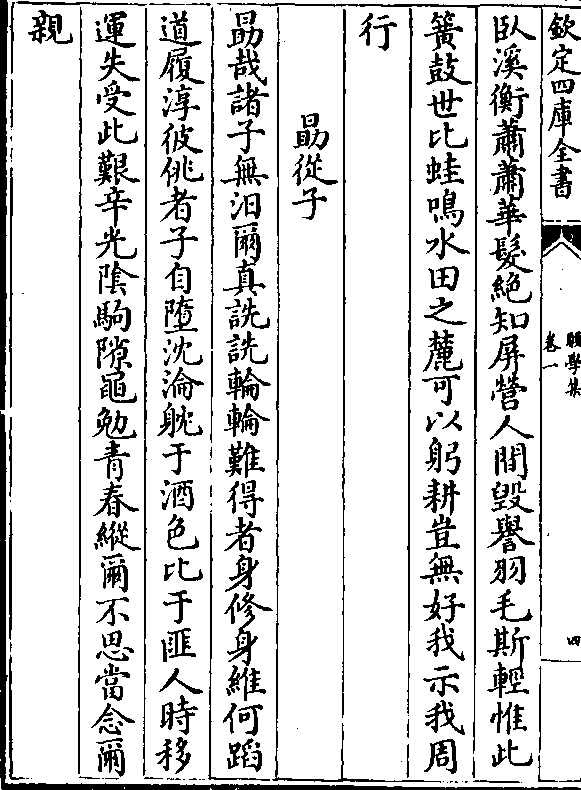 欽定四庫全書
頤學集
卷一
四
臥溪衡蕭蕭華髮絶知屏營人間毀譽羽毛斯輕惟此
簧鼓世比蛙鳴水田之麓可以躬耕豈無好我示我周
行
勗從子
勗哉諸子無汨爾真詵詵輪輪難得者身修身維何蹈
道履淳彼佻者子自墮沈淪躭于酒色比于匪人時移
運失受此艱辛光陰駒隙黽勉青春縱爾不思當念爾
親